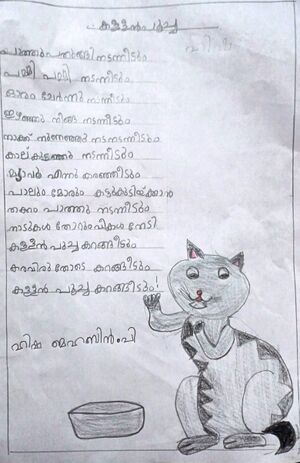 കള്ളൻപൂച്ച
പാത്തുപതുങ്ങി നടന്നീടും
പമ്മി പമ്മി നടന്നീടും
ഓരം ചേർന്നു നടന്നീടും
ഇഴഞ്ഞു നീങ്ങി നടന്നീടും
നാക്ക് നുണഞ്ഞു നടനടന്നീടും
കാല് കുടഞ്ഞു നടന്നീടും
മ്യാവൂ എന്ന് കരഞ്ഞീടും
പാലും മോരും കട്ടുകുടിയ്ക്കാൻ
തക്കം പാത്തു നടന്നീടും
നാടുകൾ തോറും വീടുകൾ തേടി
കള്ളൻ പൂച്ച കറങ്ങീടും
കരവിരുതോടെ കറങ്ങീടും
കള്ളൻ പൂച്ച കറങ്ങീടും!
ഹിബ മെഹബിൻ.പി